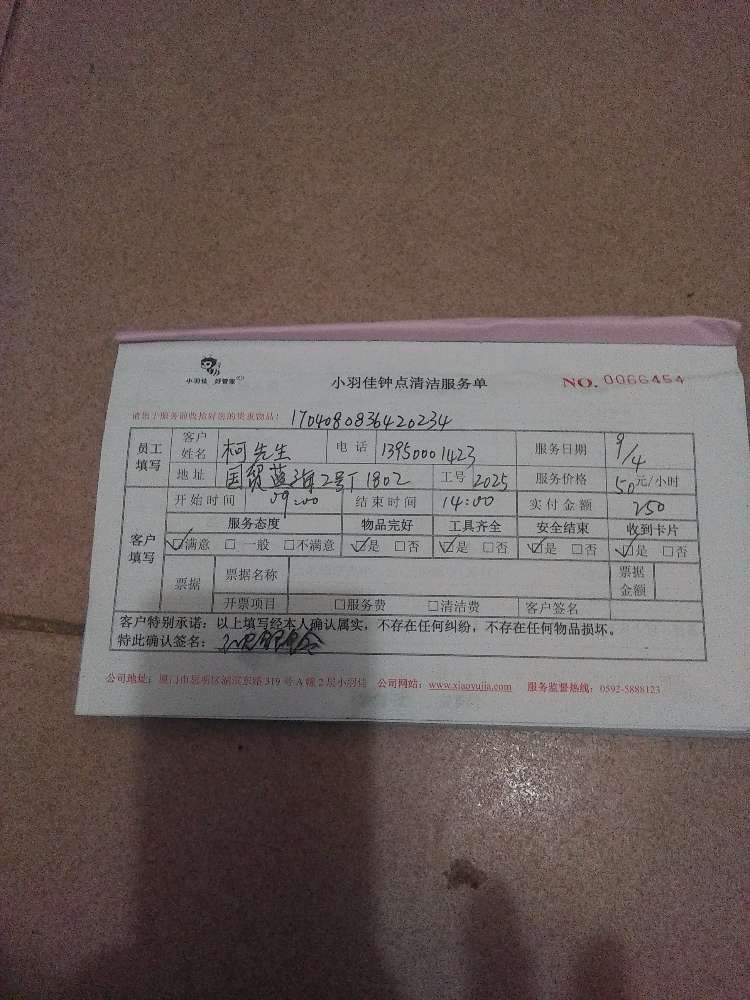 小羽佳 好管家
小羽佳钟点清洁服务单
NO. 0066454
请出于服务前收拾好您的贵重物品! 170408083642 0234
员工填写 客户姓名 柯先生 电话 13950001423 服务日期 9/4
地址 国贸蓝海2号丁1802 工号 2025 服务价格 50元/小时
客户填写 开始时间 09:00 结束时间 14:00 实付金额 250
服务态度 物品完好 工具齐全 安全结束 收到卡片
☑满意 □一般 □不满意 ☑是 □否 ☑是 □否 ☑是 □否 ☑是 □否
票据 票据名称 票据金额
开票项目 □服务费 □清洁费 客户签名
客户特别承诺：以上填写经本人确认属实，不存在任何纠纷，不存在任何物品损坏。
特此确认签名：
公司地址：厦门市思明区湖滨东路319号A幢2层小羽佳 公司网站：www.xiaoyujia.com 服务监督热线：0592-5888123